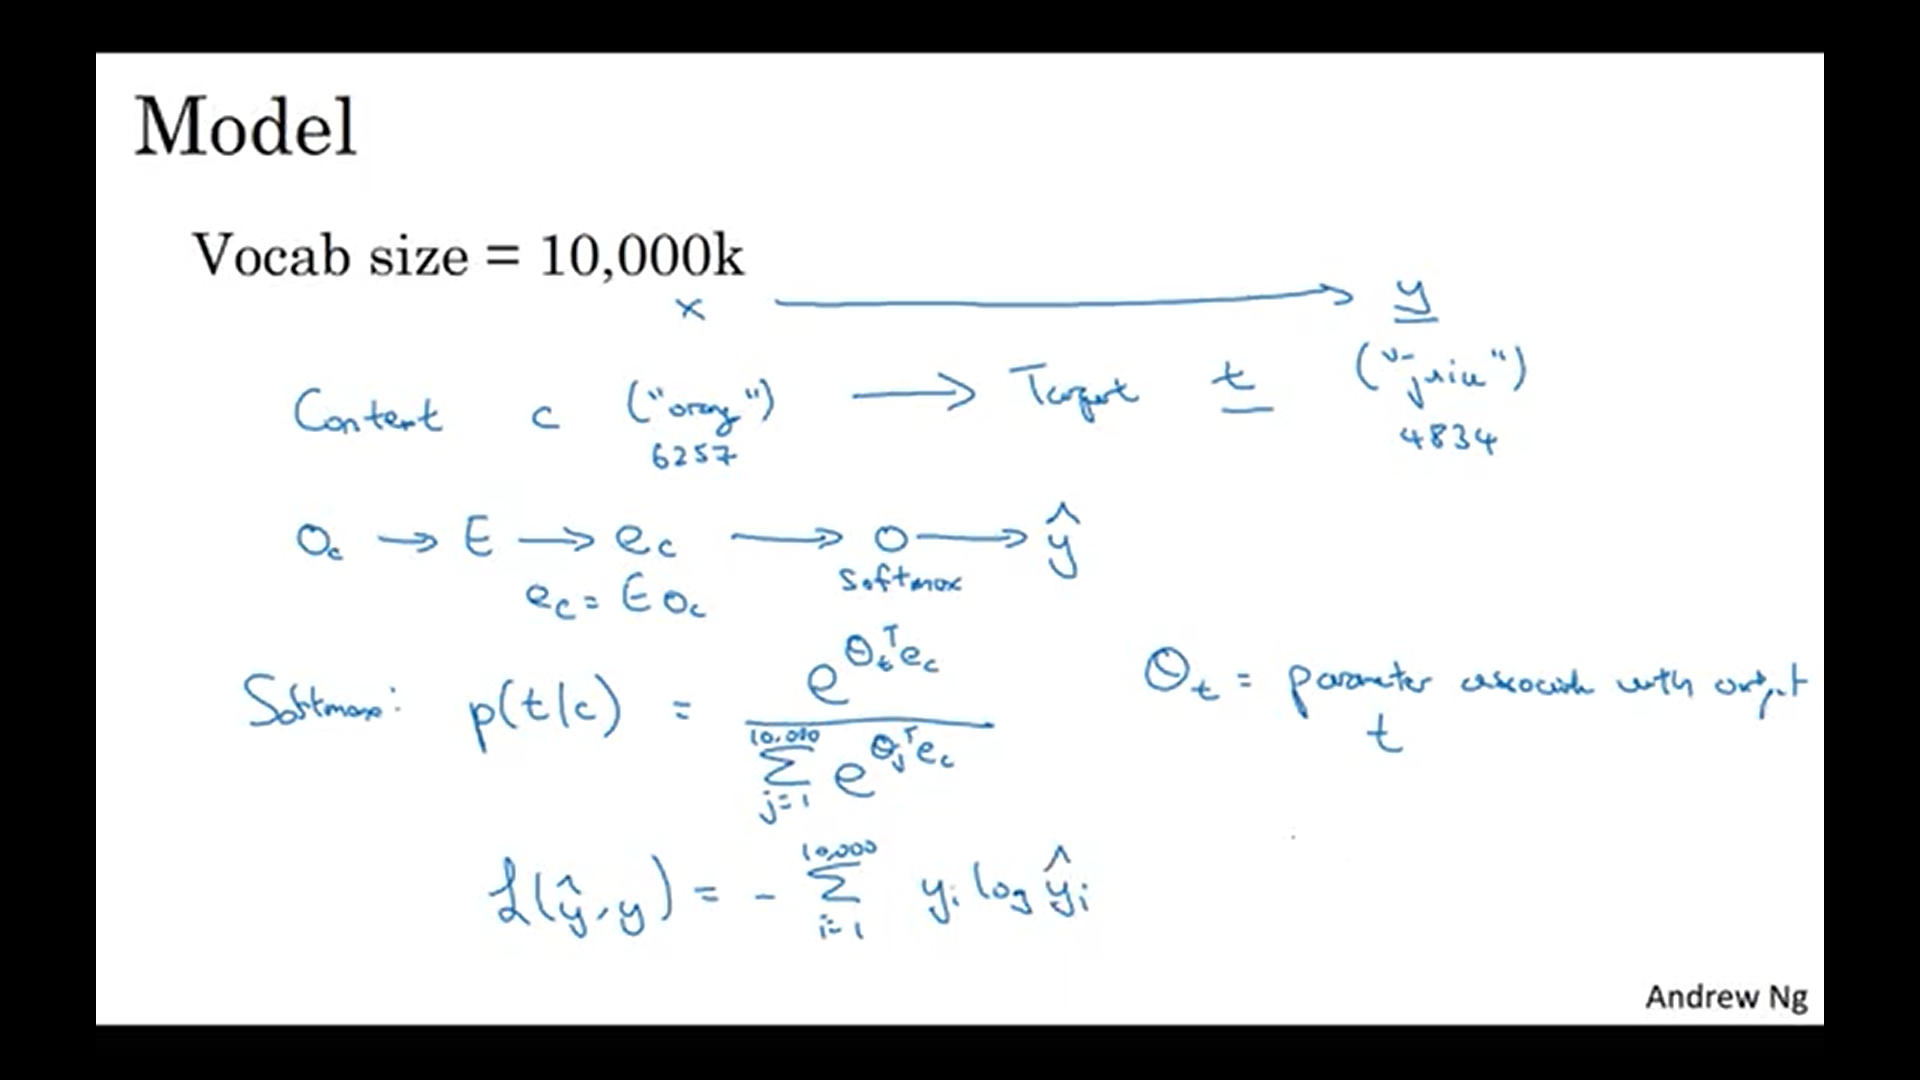 Model
Vocab size = 10,000k
x → y
Context c ("orang") → Target t ("juice")
6257 4834
O_c → E → e_c → o → ŷ
softmax
e_c = E o_c
Softmax: p(t|c) = e^{θ_t^T e_c} / Σ_{j=1}^{10,000} e^{θ_j^T e_c}
θ_t = parameter associated with output
t
ℒ(ŷ, y) = - Σ_{i=1}^{10,000} y_i log ŷ_i
Andrew Ng